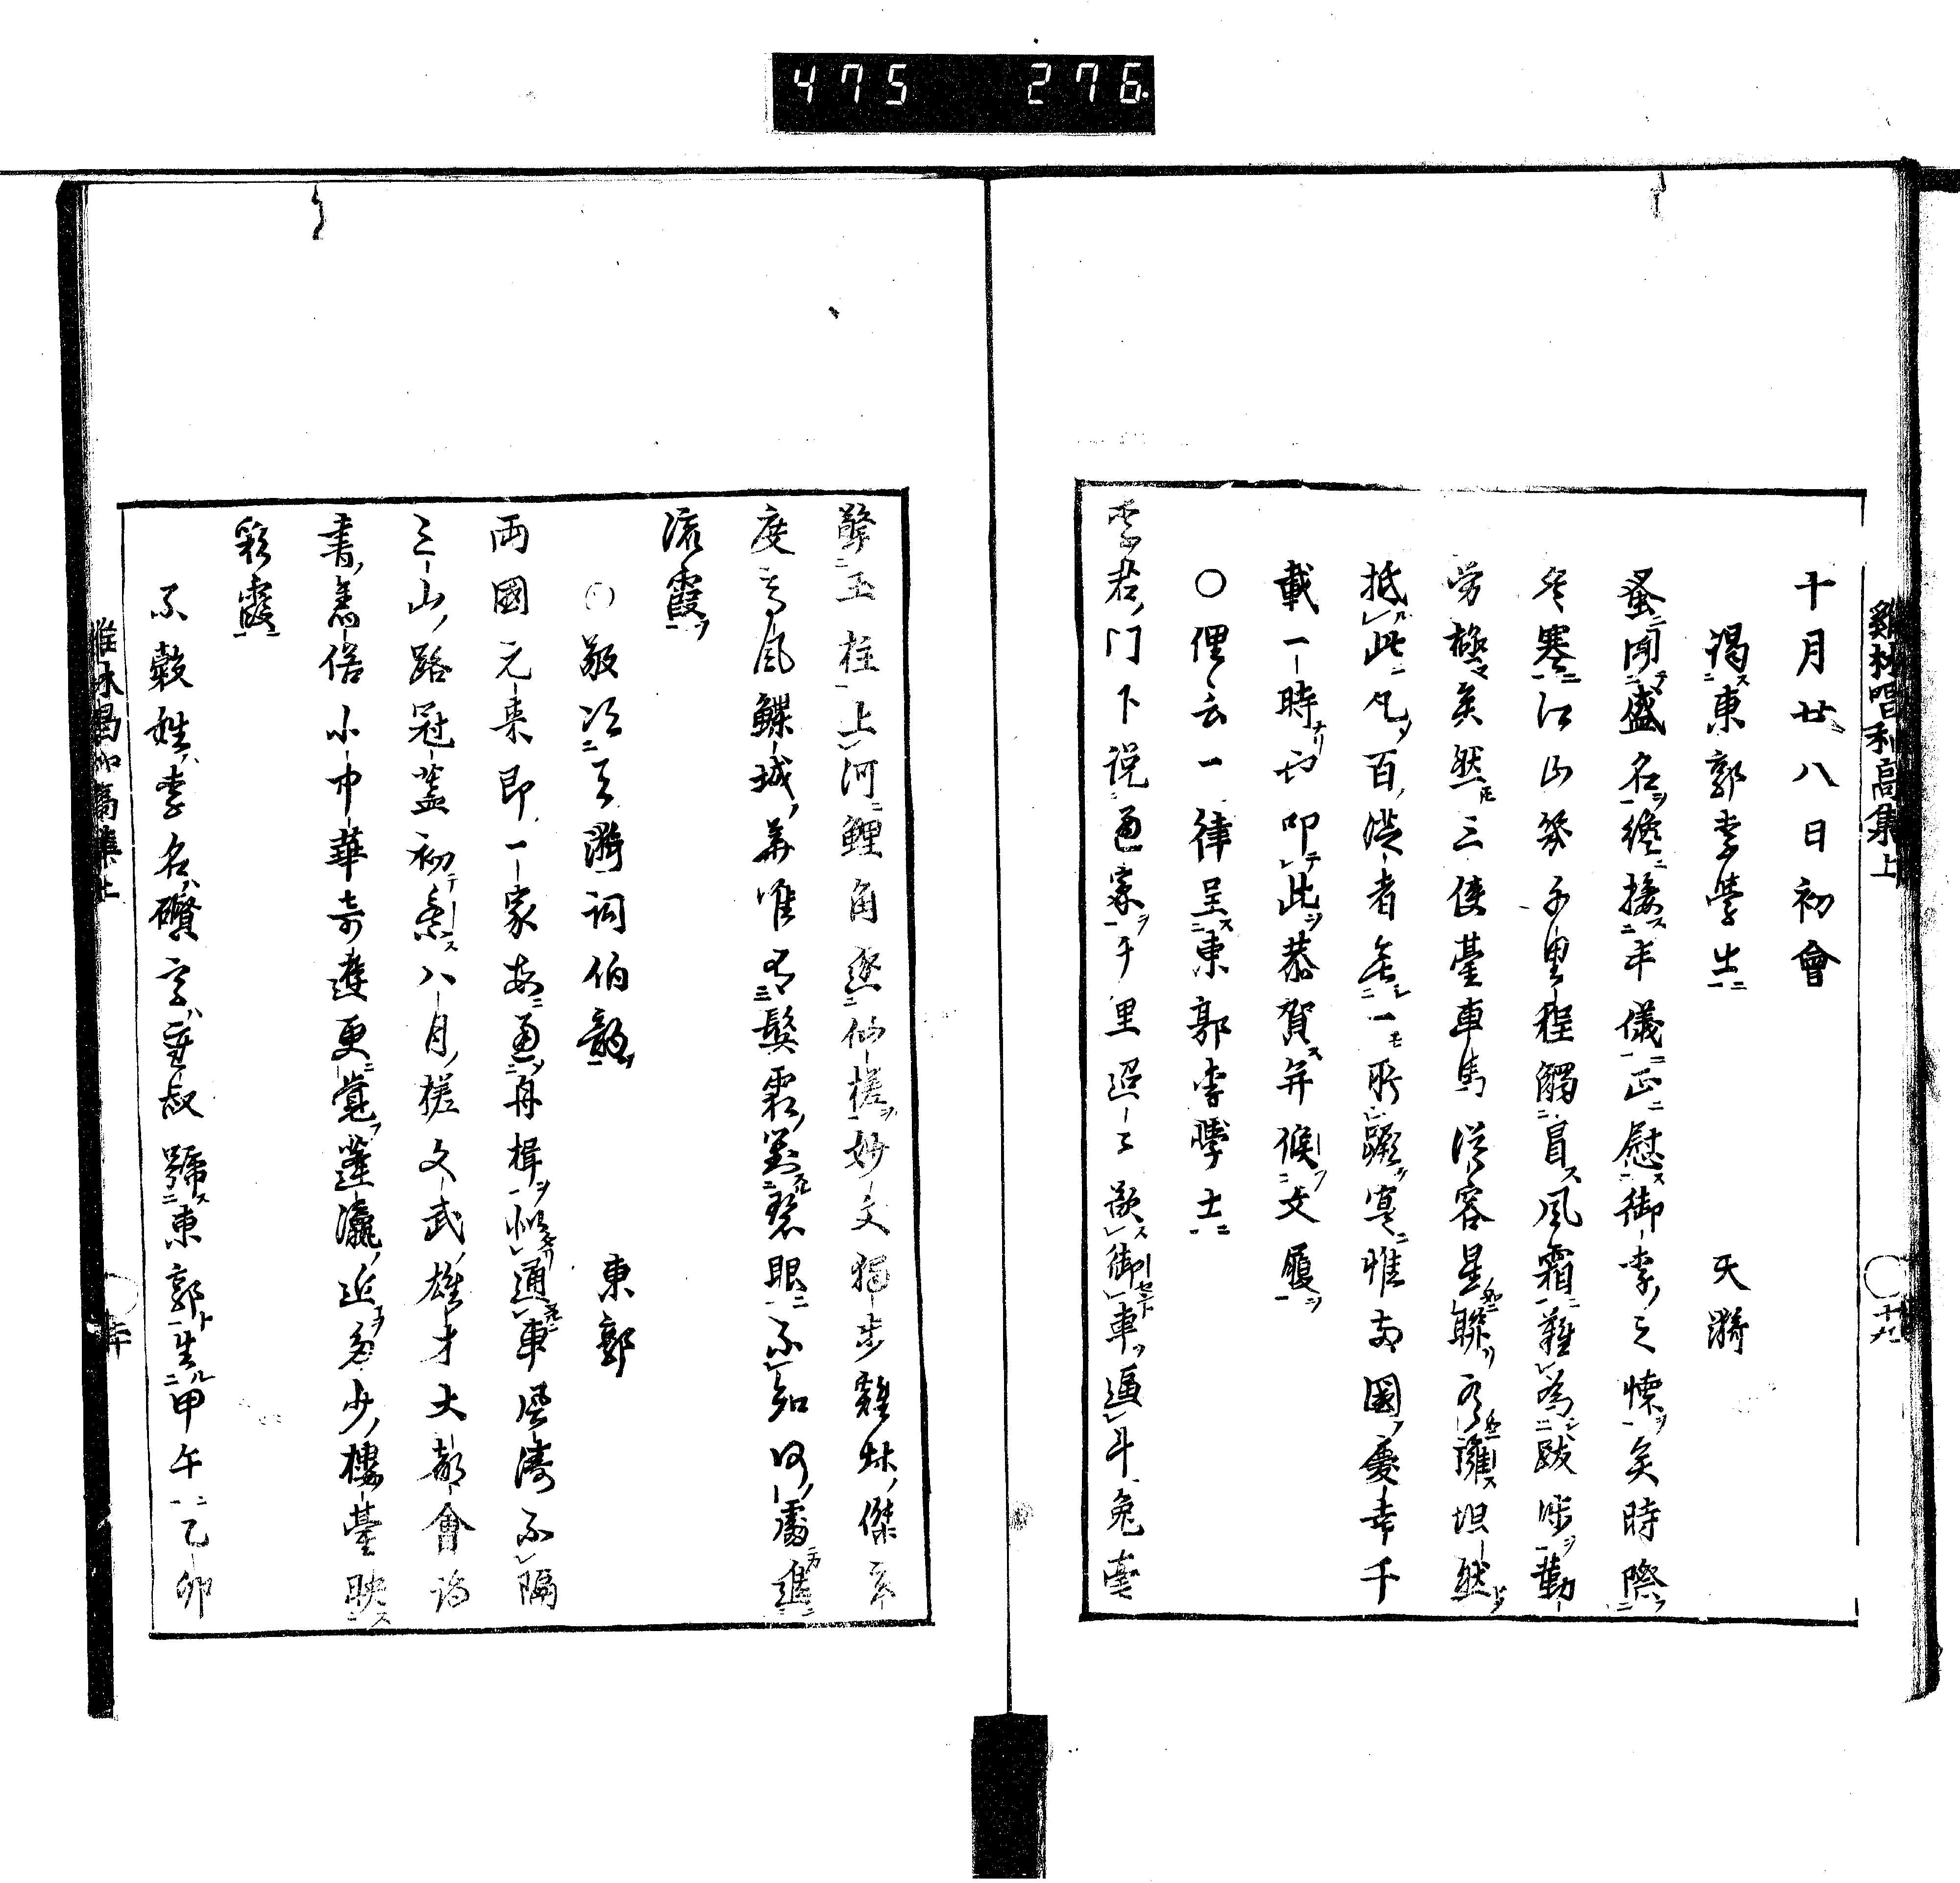 475 276
雞林唱和高集上
十九
十月廿八日初會
謁東郭李學士 天漪
蚤聞盛名纔接半儀正慰御李之懷矣時際
冬寒江山等千里程觸冒風霜難為跋涉勤
労極矣然三使臺車馬從容星聯雲擁坦然
抵此凡百從者無一所蹶寔惟両國慶幸千
載一時也叩此恭賀并候文履
○俚言一律呈東郭李學士
李君門下説通家千里迢々欲御車逼斗兔毫
擎玉柱上河鯉角逐仙槎妙文獨步雞林傑高
度高風鰈域華唯有鬢霜對碧眼不知何處進
流霞
○敬次天漪詞伯韻 東郭
両國元来即一家好通舟楫似通車風濤不隔
三山路冠蓋初乗八月槎文武雄才大都會詩
書舊俗小中華奇遊更覚蓬瀛近多少樓臺映
彩霞
不穀姓李名礥字重叔號東郭生甲午乙卯
雞林唱和高集上
二十